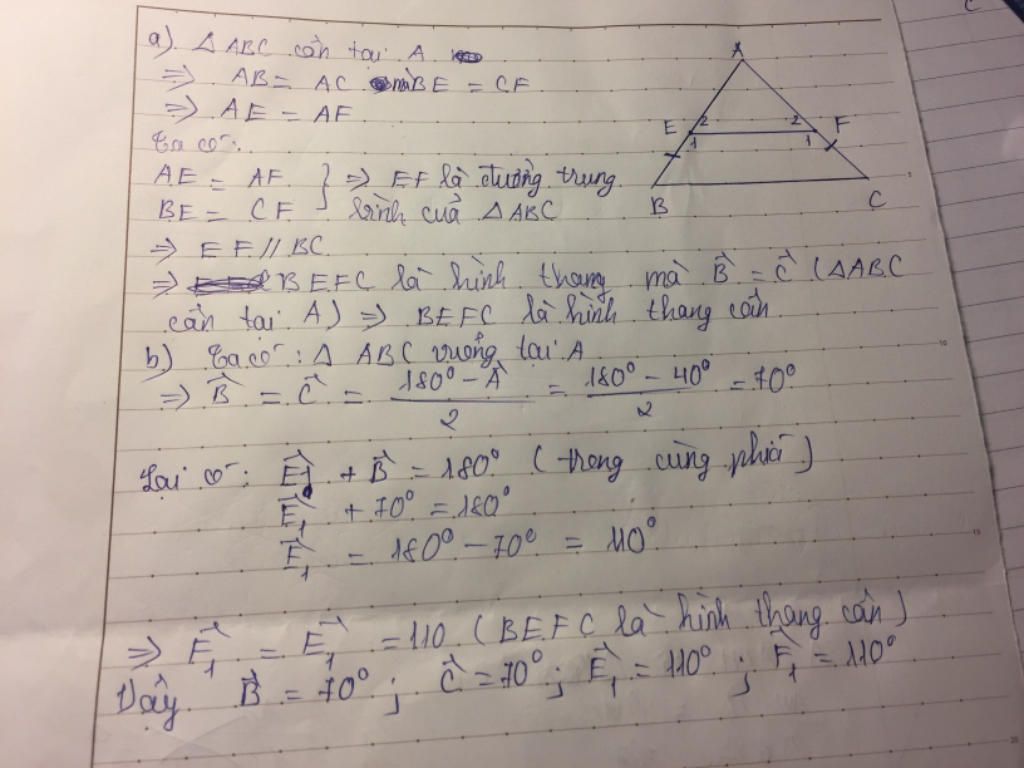 a). △ ABC cân tại A
⇒ AB = AC mà BE = CF
⇒ AE = AF
Ta có:
AE = AF } ⇒ EF là đường trung
BE = CF bình của △ ABC
⇒ EF // BC
⇒ BEFC là hình thang mà B̂ = Ĉ (△ABC
cân tại A) ⇒ BEFC là hình thang cân
b) Ta có: △ ABC vuông tại A
⇒ B̂ = Ĉ = (180° - Â)/2 = (180° - 40°)/2 = 70°
Lại có: Ê₁ + B̂ = 180° (trong cùng phía)
Ê₁ + 70° = 180°
Ê₁ = 180° - 70° = 110°
⇒ F̂₁ = Ê₁ = 110 (BEFC là hình thang cân)
Vậy B̂ = 70°; Ĉ = 70°; Ê₁ = 110°; F̂₁ = 110°
A
E 2 2 F
1 1
B C